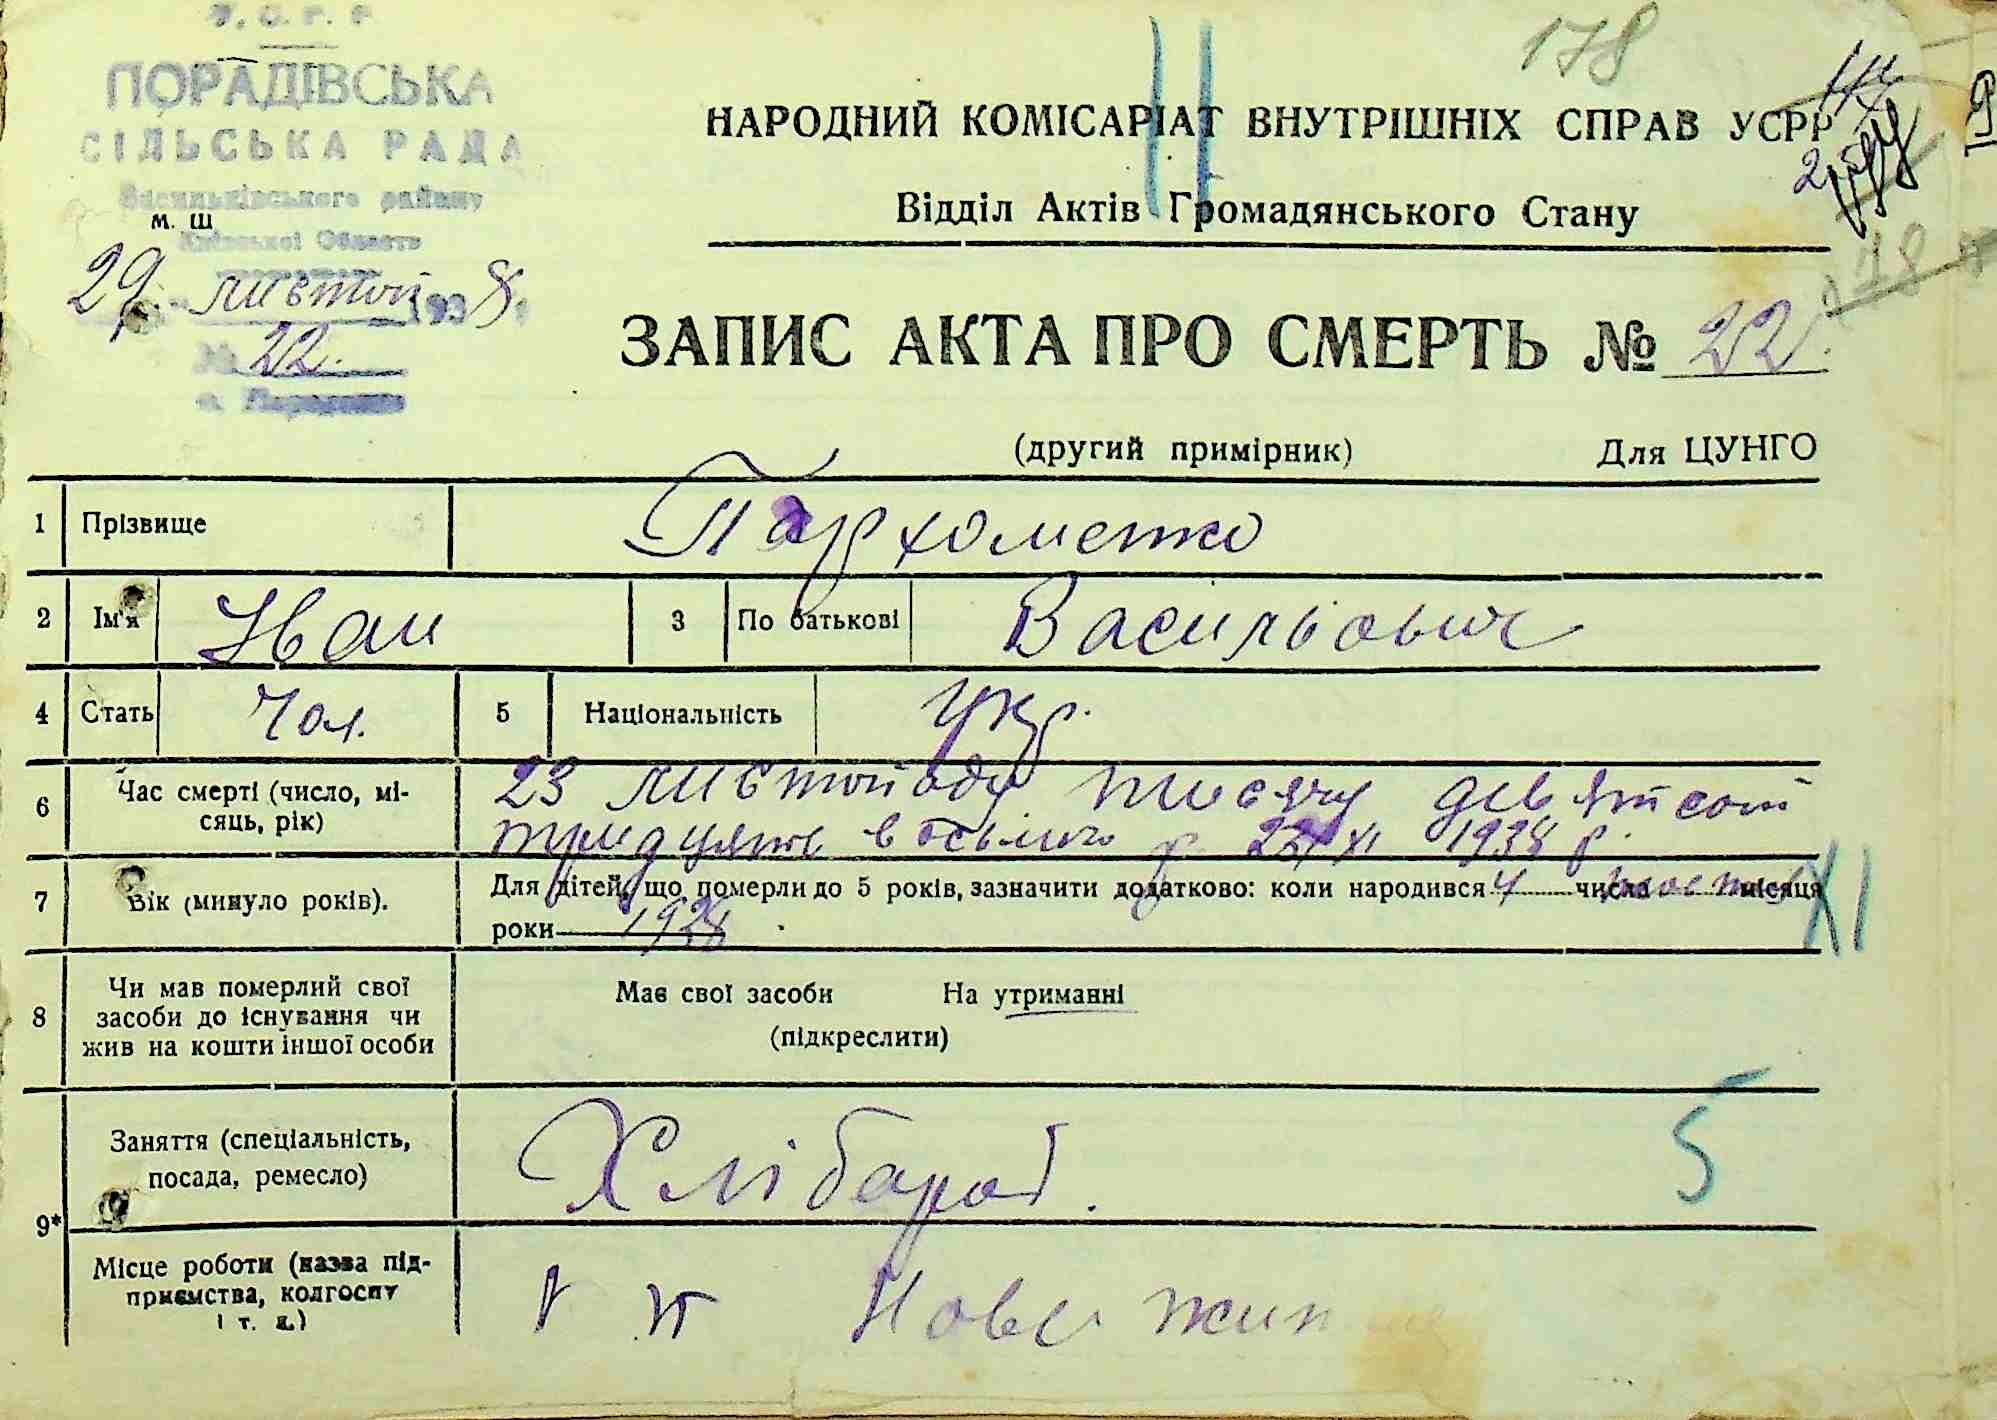 У. С. Р. Р.
ПОРАДІВСЬКА
СІЛЬСЬКА РАДА
Васильківського району
м. Ш
Київської Області
29 листоп 1938
№ 22.
178
НАРОДНИЙ КОМІСАРІАТ ВНУТРІШНІХ СПРАВ УСРР
Відділ Актів Громадянського Стану
ЗАПИС АКТА ПРО СМЕРТЬ № 22.
(другий примірник) Для ЦУНГО
1 Прізвище Пархоменко
2 Ім'я Іван 3 По батькові Васильович
4 Стать Чол. 5 Національність Укр.
6 Час смерті (число, мі-
сяць, рік)
23 листопаду тисячу девятсот
тридцять восьмого р. 23/XI 1938 р.
7 Вік (минуло років).
Для дітей, що померли до 5 років, зазначити додатково: коли народився 4 числа місяця
роки 1938
XI
8 Чи мав померлий свої
засоби до існування чи
жив на кошти іншої особи
Має свої засоби На утриманні
(підкреслити)
9* Заняття (спеціальність,
посада, ремесло)
Хлібороб.
5
Місце роботи (назва під-
приємства, колгоспу
і т. д.)
Нове жит